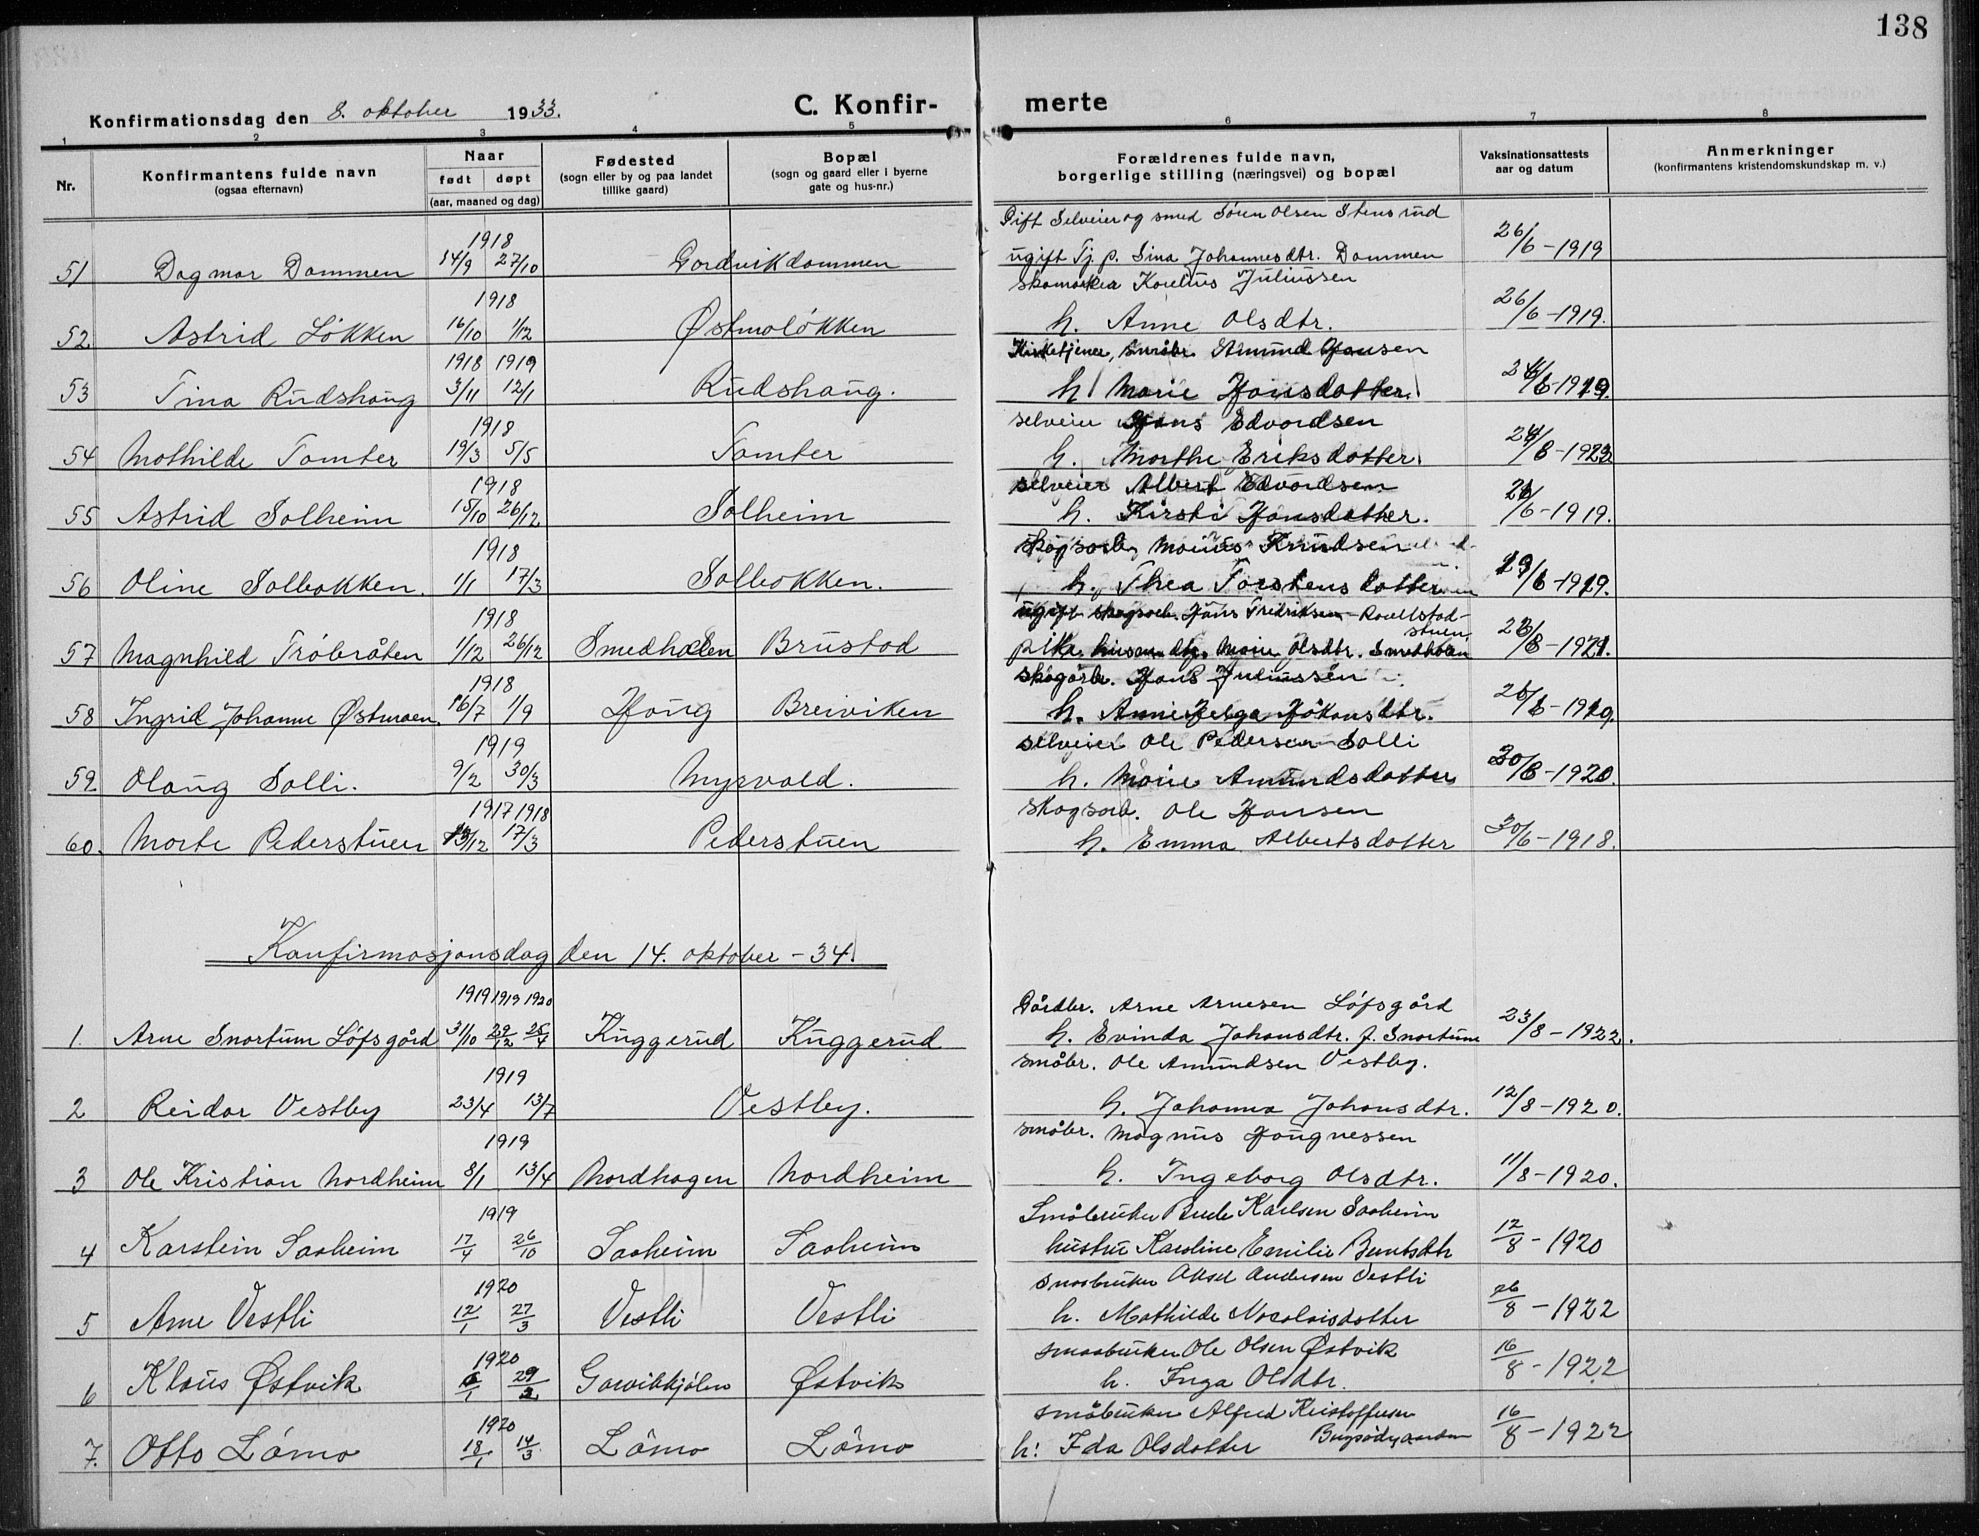 138
Konfirmationsdag den 8. oktober 1933. C. Konfirmerte
1 2 3 4 5 6 7 8
Nr. Konfirmantens fulde navn (ogsaa efternavn) Naar født døpt (aar, maaned og dag) Fødested (sogn eller by og paa landet tillike gaard) Bopæl (sogn og gaard eller i byerne gate og hus-nr.) Forældrenes fulde navn, borgerlige stilling (næringsvei) og bopæl Vaksinationsattests aar og datum Anmerkninger (konfirmantens kristendomskundskap m. v.)
1918 Gift Selveier og smed Sören Olsen Stensrud
51 Dagmar Dammen 14/9 27/10 Gardvikdammen ugift Tj. p. Sina Johannesdtr. Dammen 26/6-1919
1918 skomaker Kornelius Juliussen
52 Astrid Løkken 16/10 1/12 Østmoløkken h. Anne Olsdtr. 26/6-1919.
1918 1919 Kirketjener, småbr. Amund Hansen
53 Tina Rudshaug 3/11 12/1 Rudshaug. h. Marie Hansdatter. /6-1919.
1918 selveier Hans Edvardsen
54 Mathilde Tomter 19/3 5/5 Tomter h. Marthe Eriksdatter. /8-1923.
1918 selveier Albert Edvardsen
55 Astrid Solheim 15/10 26/12 Solheim h. Kirsti Hansdatter. /6-1919.
1918 skogsarb. Marius Knudsen
56 Oline Solbakken. 1/1 17/3 Solbakken. h. Thea Torstensdatter /6-1919.
1918 ugift skogsarb. Hans Fredriksen
57 Magnhild Trøbråten 1/12 26/12 Smedhølen Brustad pike Marie Olsdtr. Smedhølen /8-1921.
1918 skogarb. Hans Juliussen
58 Ingrid Johanne Østmoen 16/7 1/9 Haug Breiviken h. Anne Helga Håkonsdtr. 26/6-1919.
1919 selveier Ole Pedersen Solli
59. Olaug Solli. 9/2 30/3 Myrvold. h. Marie Amundsdatter 30/8-1920.
1917 1918 skogsarb. Ole Hansen
60. Marte Pederstuen 13/12 17/3 Pederstuen h. Emma Albertsdatter 30/6-1918.
Konfirmasjonsdag den 14. oktober - 34.
1919 1919 1920 Gårdbr. Arne Arnesen Løfsgård
1. Arne Snortum Løfsgård 31/10 29/12 25/4 Kuggerud Kuggerud h. Evinda Johansdtr. f. Snortum 23/8-1922.
1919 småbr. Ole Amundsen Vestby.
2 Reidar Vestby 23/4 13/7 Vestby. h. Johanna Johansdtr. 12/8-1920.
1919 småbr. Magnus Haugnessen
3 Ole Kristian Nordheim 8/1 13/4 Nordhagen Nordheim h. Ingeborg Olsdtr. 11/8-1920.
1919 Småbruker Karlsen Saaheim
4 Karstein Saaheim 17/4 26/10 Saaheim Saaheim hustru Karoline Emilie Berntsdtr 12/8-1920
1920 smaabruker Aksel Andersen Vestli
5 Arne Vestli 12/1 27/3 Vestli Vestli h. Mathilde Nicolaisdatter 26/8-1922
1920 smaabruker Ole Olsen Østvik
6 Klaus Østvik 6/1 29/2 Garvikkjølen Østvik h. Inga Olsdtr. 16/8-1922
1920 småbruker Alfred Kristoffersen
7. Otto Lömo 18/1 14/3 Lömo Lömo h: Ida Olsdatter 16/8-1922